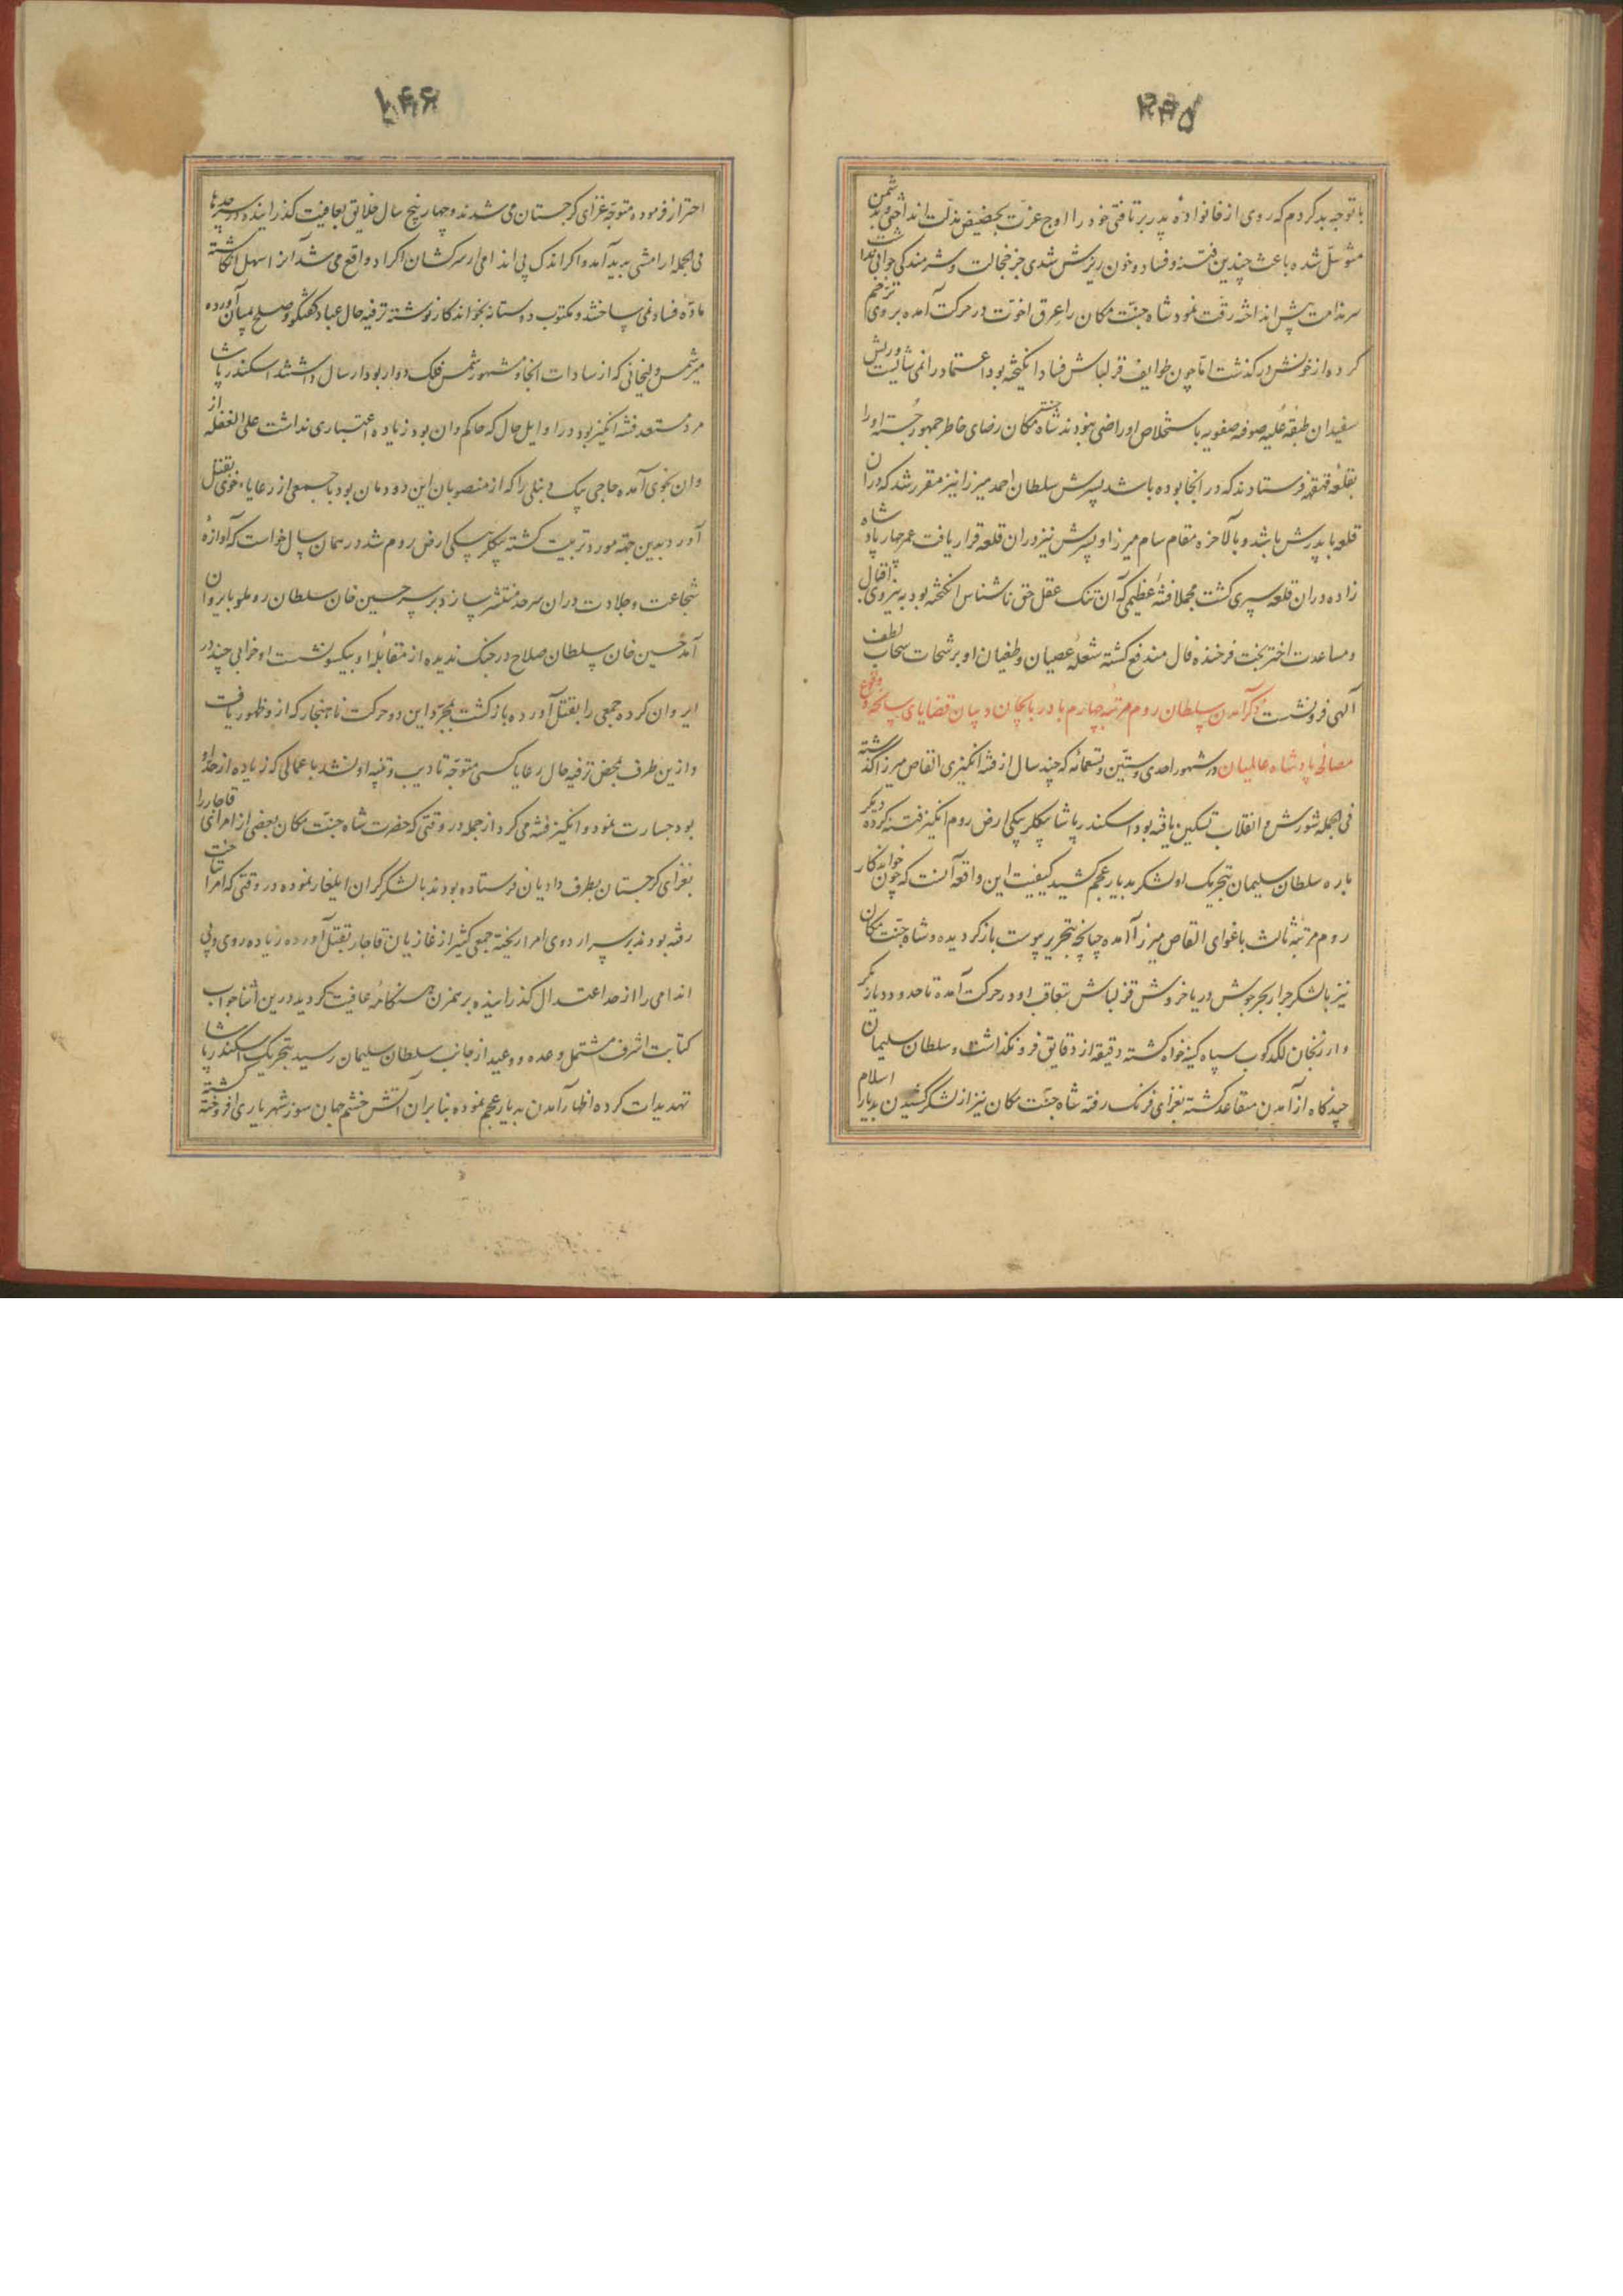 ۲۴۵
با توجه بد کردم که روی از خانوادهٔ پدر برتافتی خود را از اوج عزت بحضیض مذلت انداختی و بدشمن
متوسل شده باعث چندین فتنه و فساد و خون ریزش شدی جز خجالت و شرمندگی جوابی نداشت
سر ندامت پیش انداخته رقت نمود شاه جنت مکان را عرق اخوت در حرکت آمده بروی ترحم
کرده از خونش درگذشت اما چون طوایف قزلباش فساد انگیخته بود اعتماد را نمی‌شایست و ریش
سفیدان طبقهٔ علیه صوفیه صفویه باستخلاص او راضی نبودند شاه جنت مکان رضای خاطر جمهور جسته او را
بقلعه قهقهه فرستادند که در آنجا بوده باشد پسرش سلطان احمد میرزا نیز مقرر شد که در ان
قلعه با پدرش باشد و بالآخره مقام سام میرزا و پسرش نیز در ان قلعه قرار یافت عمر چهار پادشاه
زاده در ان قلعه سپری گشت مجملا فتنهٔ عظیمی که آن تنک عقل حق ناشناس انگیخته بود به نیروی اقبال
و مساعدت اختر بخت فرخنده فال مندفع گشته شعلهٔ عصیان و طغیان او برشحات سحاب لطف
آلهی فرونشست ذکر آمدن سلطان روم مرتبه چهارم باذربایجان و بیان قضایای سانحه و وقوع
مصالحهٔ پادشاه عالمیان در شهور احدی و ستین و تسعمائه که چند سال از فتنه انگیزی القاص میرزا گذشته
فی الجمله شورش و انقلاب تسکین یافته بود اسکندر پاشا بیکلربیکی ارض روم انگیز فتنه کرده دیگر
باره سلطان سلیمان بتحریک او لشکر بدیار عجم کشید کیفیت این واقعه آنست که چون خواندکار
روم مرتبهٔ ثالث باغوای القاص میرزا آمده چنانچه بتحریر پیوست بازگردیده و شاه جنت مکان
نیز با لشکر جرار بحر جوش دریا خروش قزلباش بتعاقب او در حرکت آمده تا حدود دیار بکر
و ارزنجان لگدکوب سپاه کینه خواه گشته دقیقه از دقایق فرونگذاشت و سلطان سلیمان
چندگاه از آمدن متقاعد گشته بغزای فرنگ رفته شاه جنت مکان نیز از لشکر کشیدن بدیار اسلام
۲۴۶
احتراز فرموده متوجه غزای گرجستان می شدند و چهار پنج سال خلایق بعافیت گذرانیده در سرحدها
فی الجمله آرامشی پدید آمد و اگر اندک بی اندامی از سرکشان اکراد واقع می شد آنرا سهل انگاشته
مادهٔ فساد نمی ساختند و مکتوب دوستانه بخواندکار نوشته ترفیه حال عباد گفتگوی صلح بمیان آورده
میر شمس دلیجانی که از سادات آنجا و مشهور شمس فلک دوار بود ارسال داشتند اسکندر پاشا
مرد مستعد فتنه انگیز بود در اوایل حال که حاکم وان بود زیاده اعتباری نداشت علی الغفله از
وان بخوی آمده حاجی بیک دنبلی را که از منصوبان این دودمان بود با جمعی از رعایاء خوی بقتل
آورد بدین جهة مورد تربیت گشته بیکلربیکی ارض روم شد در همان سال خواست که آوازهٔ
شجاعت و جلادت در ان سرحد منتشر سازد بر سر حسین خان سلطان روملو بایروان
آمد حسین خان سلطان صلاح در جنگ ندیده از مقابله او بیکسو نشست او خرابی چند در
ایروان کرده جمعی را بقتل آورده بازگشت بمجرد این دو حرکت ناهنجار که از و ظهور یافت
و ازین طرف محض ترفیه حال رعایا کسی متوجه تادیب و تنبیه او نشد باعمالی که زیاده از حد او
بود جسارت نمود و انگیز فتنه می کرد از جمله در وقتی که حضرت شاه جنت مکان بعضی از امرای قاجار را
بغزای گرجستان بطرف دادیان فرستاده بودند با لشکر گران ایلغار نموده در وقتی که امرا بتاخت
رفته بودند بر سر اردوی امرا ریخته جمعی کثیر از غازیان قاجار بقتل آورده زیاده روی و بی
اندامی را از حد اعتدال گذرانیده برهمزن هنگامهٔ عافیت گردید درین اثنا جواب
کتابت اشرف مشتمل وعده و وعید از جانب سلطان سلیمان رسید بتحریک اسکندر پاشا
تهدیدات کرده اظهار آمدن بدیار عجم نموده بنابر ان آتش خشم جهان سوز شهریاری افروخته گشته